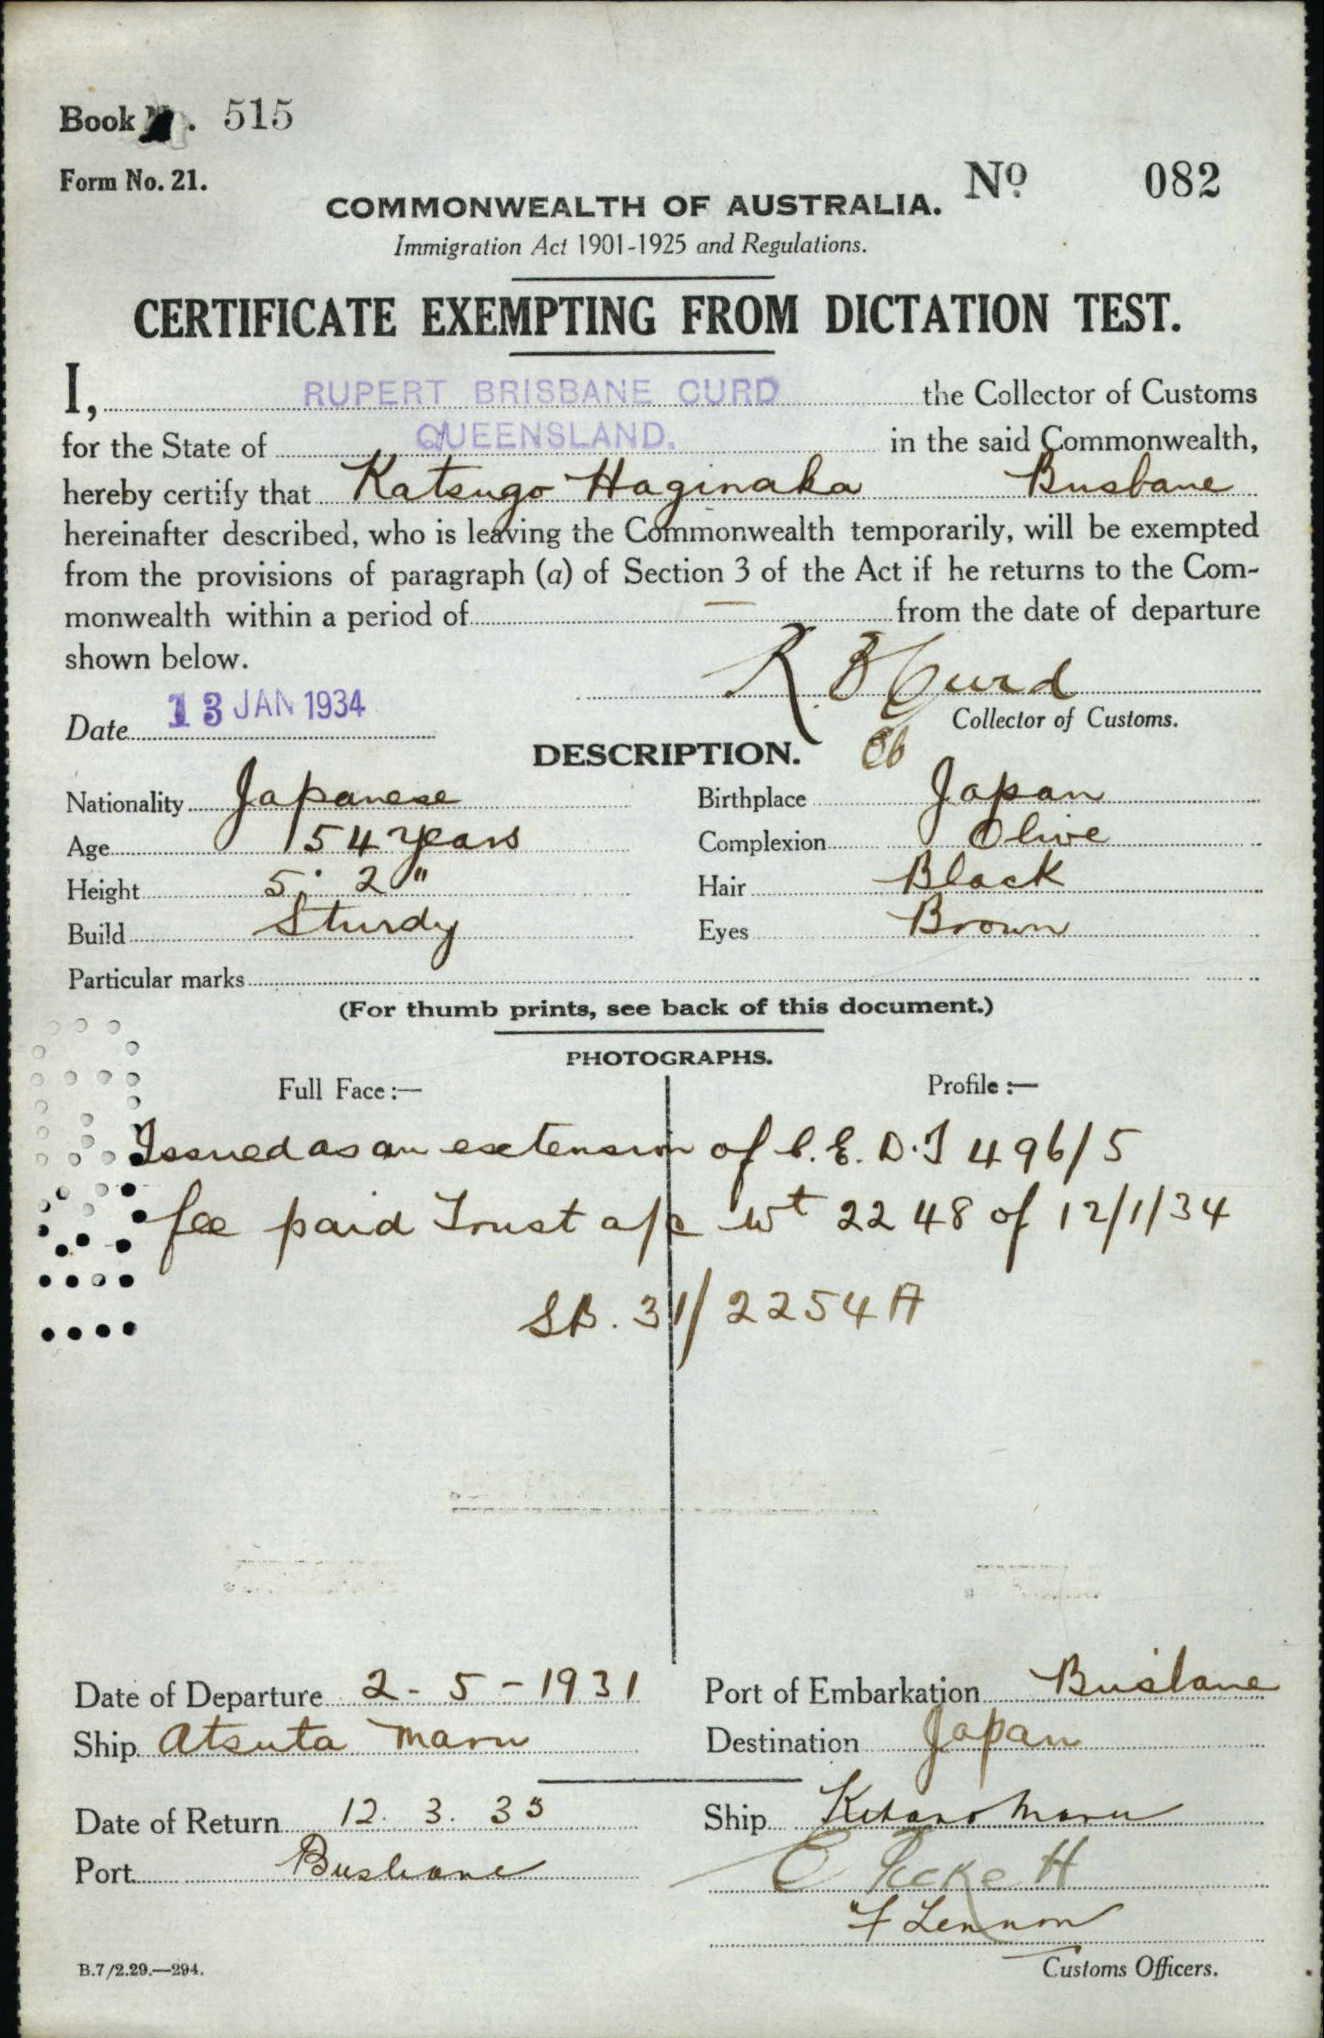 Book No. 515
Form No. 21.
No 082
COMMONWEALTH OF AUSTRALIA.
Immigration Act 1901-1925 and Regulations.
CERTIFICATE EXEMPTING FROM DICTATION TEST.
I, RUPERT BRISBANE CURD the Collector of Customs
for the State of QUEENSLAND. in the said Commonwealth,
hereby certify that Katsugo Haginaka Brisbane
hereinafter described, who is leaving the Commonwealth temporarily, will be exempted
from the provisions of paragraph (a) of Section 3 of the Act if he returns to the Com-
monwealth within a period of — from the date of departure
shown below.
R B Curd
Date 13 JAN 1934
Collector of Customs.
DESCRIPTION.
Nationality Japanese Birthplace Japan
Age 54 years Complexion Olive
Height 5' 2" Hair Black
Build Sturdy Eyes Brown
Particular marks
(For thumb prints, see back of this document.)
PHOTOGRAPHS.
Full Face:— Profile:—
Issued as an extension of C.E.D.T 496/5
fee paid Trust a/c wt 2248 of 12/1/34
SB. 31/2254A
Date of Departure 2-5-1931 Port of Embarkation Brisbane
Ship Atsuta Maru Destination Japan
Date of Return 12. 3. 35 Ship Kitano Maru
Port Brisbane
F Lennon
B.7/2.29.—294.
Customs Officers.